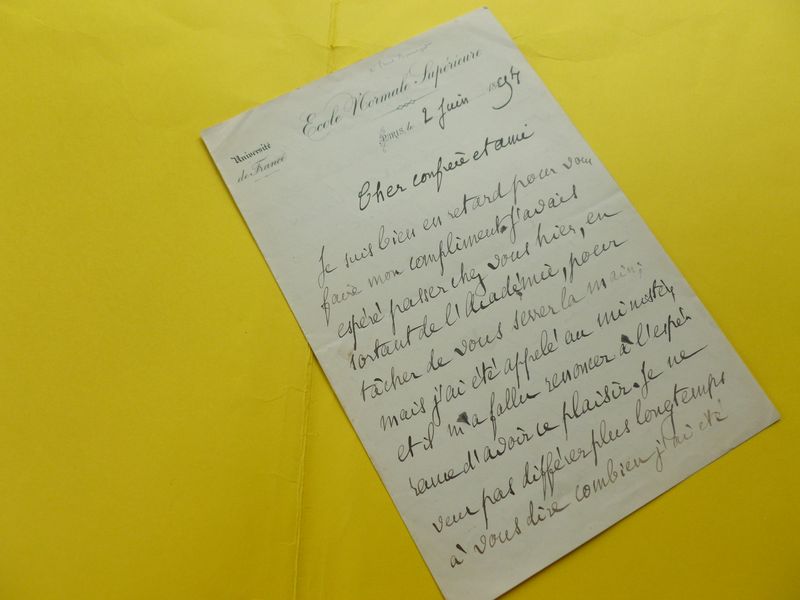 Ecole Normale Supérieure
Université
de France
Paris, le 2 Juin 1894
Cher confrère et ami
Je suis bien en retard pour vous
faire mon compliment. J'avais
espéré passer chez vous hier, en
sortant de l'Académie, pour
tâcher de vous serrer la main;
mais j'ai été appelé au ministère,
et il m'a fallu renoncer à l'espé-
rance d'avoir ce plaisir. Je ne
veux pas différer plus longtemps
à vous dire combien j'ai été